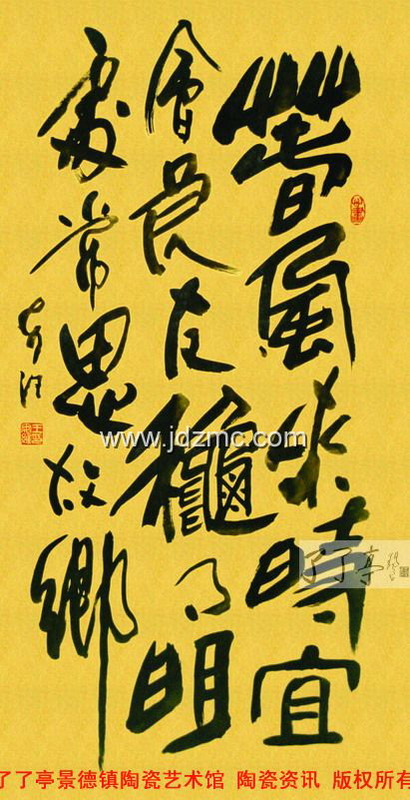 春風來時宜
會良友龝月明
處常思故鄉
www.jdzmc.com
了了亭
了了亭景德镇陶瓷艺术馆 陶瓷资讯 版权所有